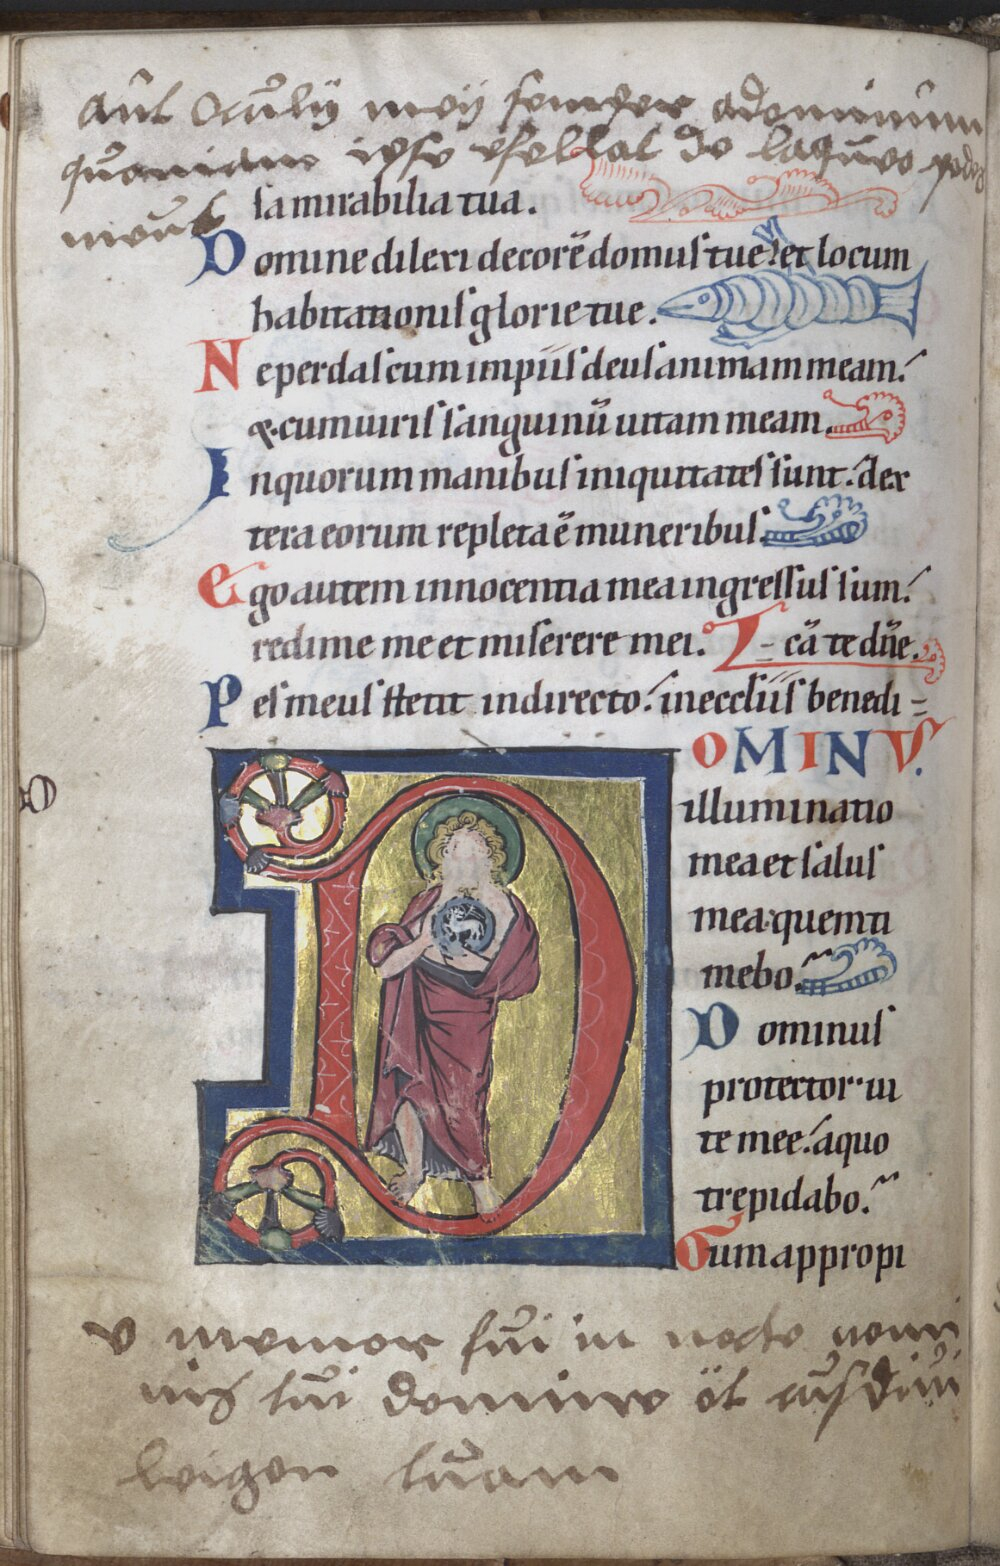 Ant Oculy mey semper adominum
quoniam ipse evellat de laqueo pedes
meus
sa mirabilia tua.
Domine dilexi decorē domus tue: et locum
habitationis glorie tue.
Ne perdas cum impiis deus animam meam:
& cum uiris sanguinū uitam meam.
In quorum manibus iniquitates sunt: dex
tera eorum repleta ē muneribus.
Ego autem innocentia mea ingressus sum:
redime me et miserere mei.
Pes meus stetit in directo: in eccliis benedi=
cā te dn̄e.
DOMINUS
illuminatio
mea et salus
mea: quem ti
mebo.
Dominus
protector ui
te mee: a quo
trepidabo.
Dum appropi
v memor fui in nocte nomi
nis tui domine et custodivi
legem tuam